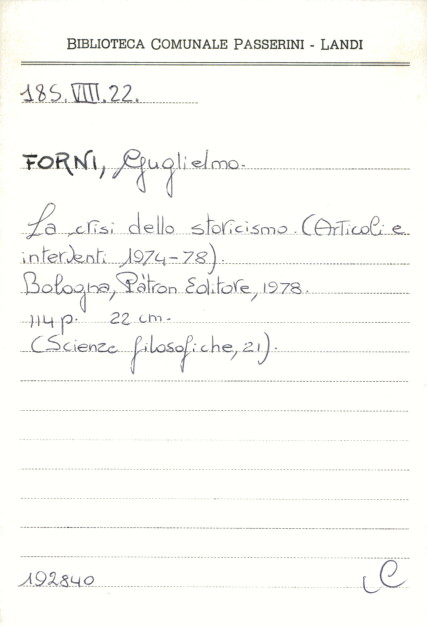 BIBLIOTECA COMUNALE PASSERINI - LANDI
185.VIIII.22.
FORNI, Guglielmo.
La crisi dello storicismo. (Articoli e
interventi 1974-78).
Bologna, Pàtron Editore, 1978.
114 p. 22 cm.
(Scienze filosofiche, 21).
192840